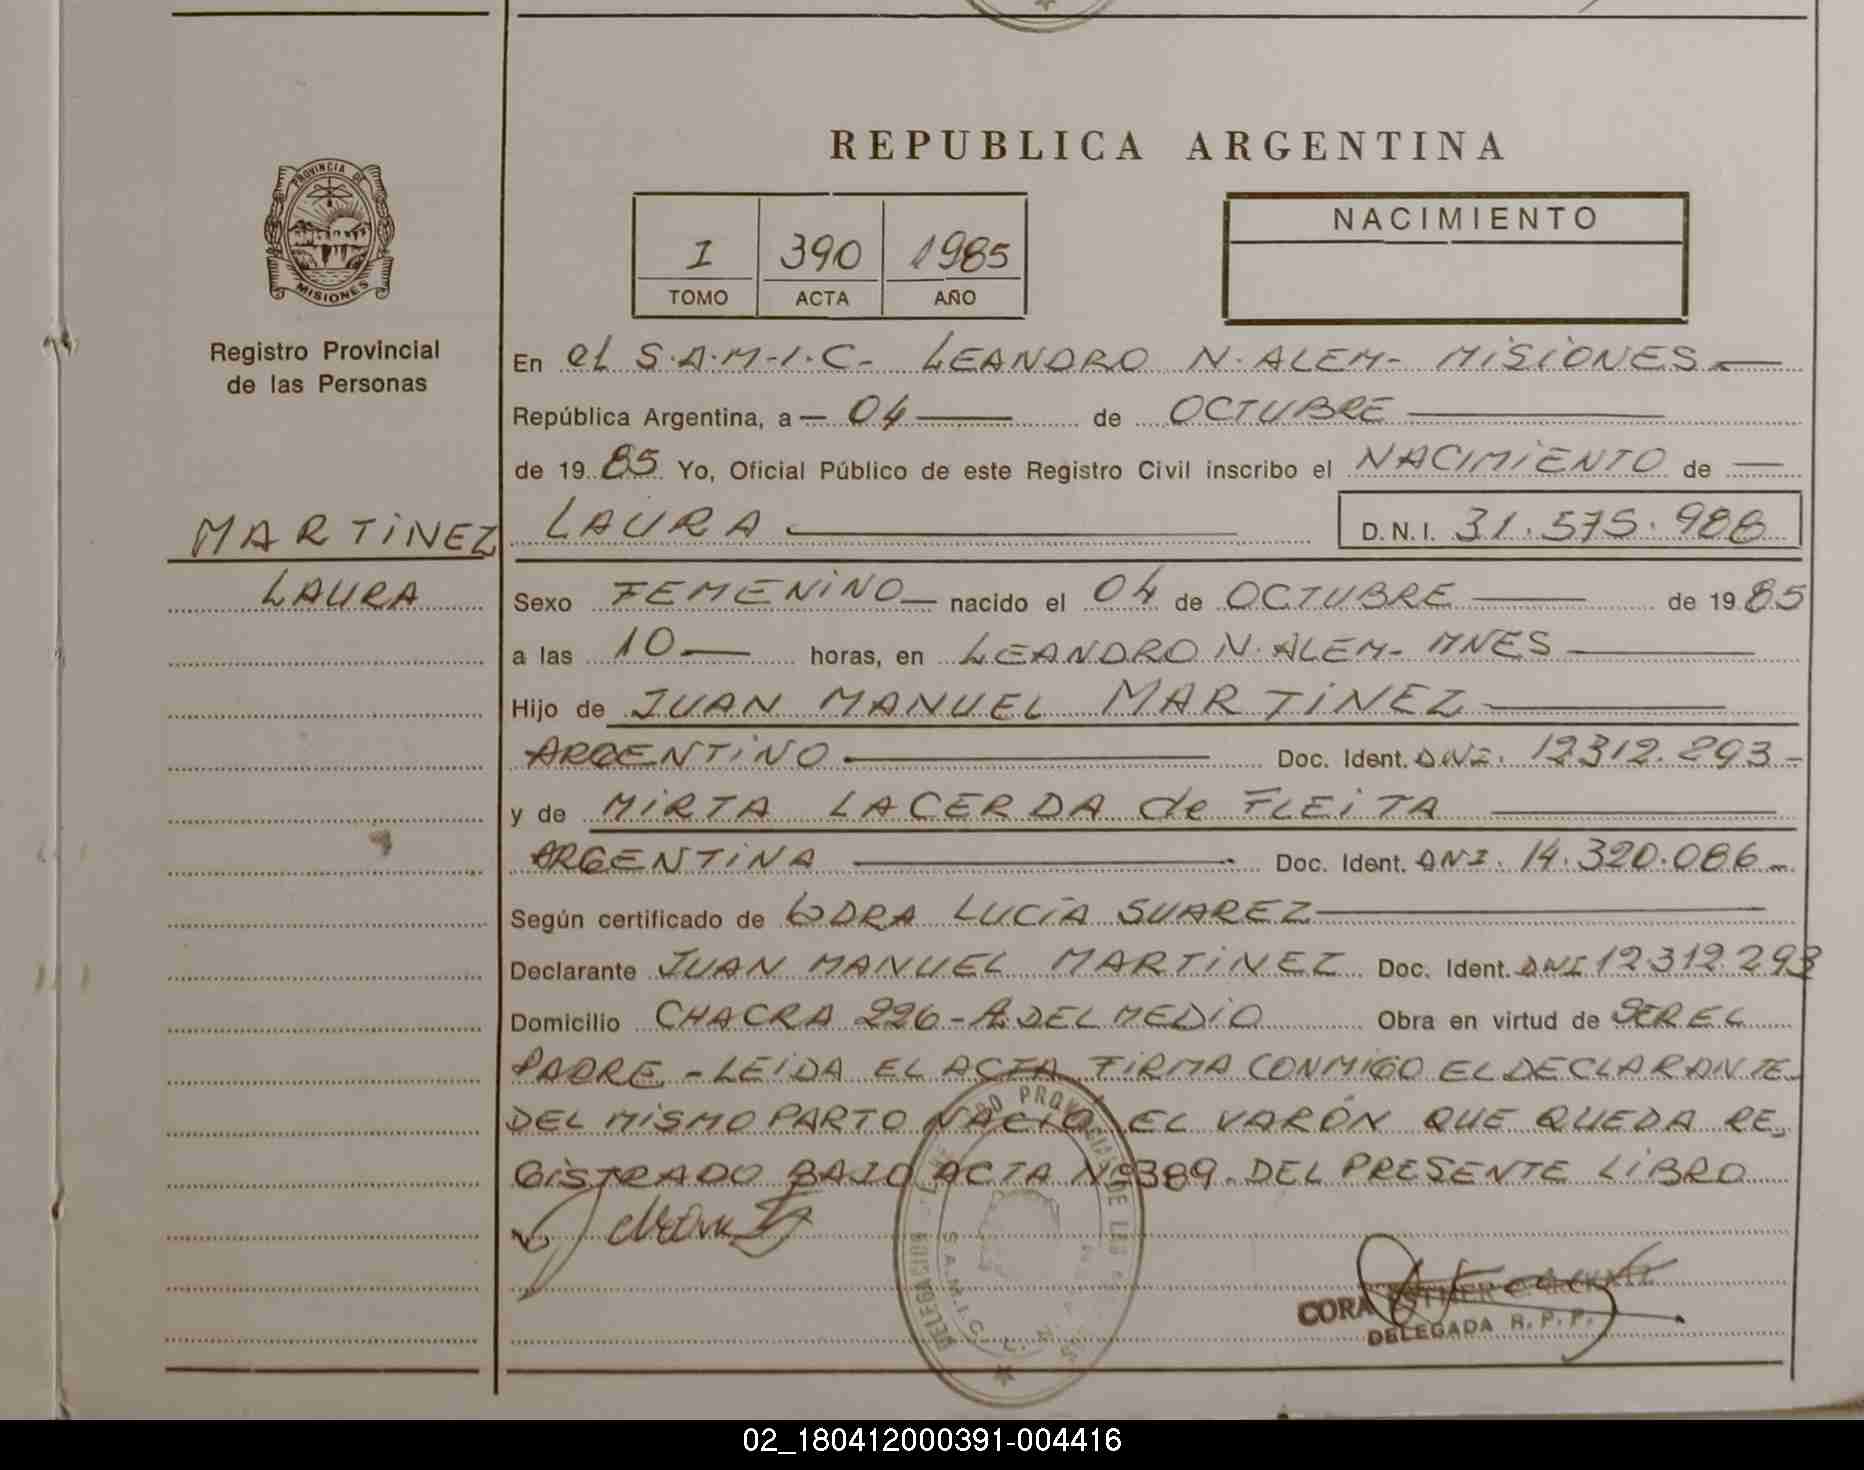 REPUBLICA ARGENTINA
PROVINCIA DE
MISIONES
I 390 1985
TOMO ACTA AÑO
NACIMIENTO
Registro Provincial
de las Personas
En el S.A.M.I.C. LEANDRO N. ALEM - MISIONES
República Argentina, a 04 de OCTUBRE
de 1985 Yo, Oficial Público de este Registro Civil inscribo el NACIMIENTO de
MARTINEZ
LAURA
LAURA D.N.I. 31.575.988
Sexo FEMENINO nacido el 04 de OCTUBRE de 1985
a las 10 horas, en LEANDRO N. ALEM - MNES
Hijo de JUAN MANUEL MARTINEZ
ARGENTINO Doc. Ident. DNI. 12312.293
y de MIRTA LACERDA de FLEITA
ARGENTINA Doc. Ident. DNI. 14.320.086
Según certificado de DRA LUCIA SUAREZ
Declarante JUAN MANUEL MARTINEZ Doc. Ident. DNI 12312293
Domicilio CHACRA 226 - A. DEL MEDIO Obra en virtud de SER EL
PADRE - LEIDA EL ACTA FIRMA CONMIGO EL DECLARANTE
DEL MISMO PARTO NACIO EL VARÓN QUE QUEDA RE-
GISTRADO BAJO ACTA Nº 389. DEL PRESENTE LIBRO
CORA
DELEGADA R.P.P.
DELEGACION
S.A.M.I.C.
02_180412000391-004416